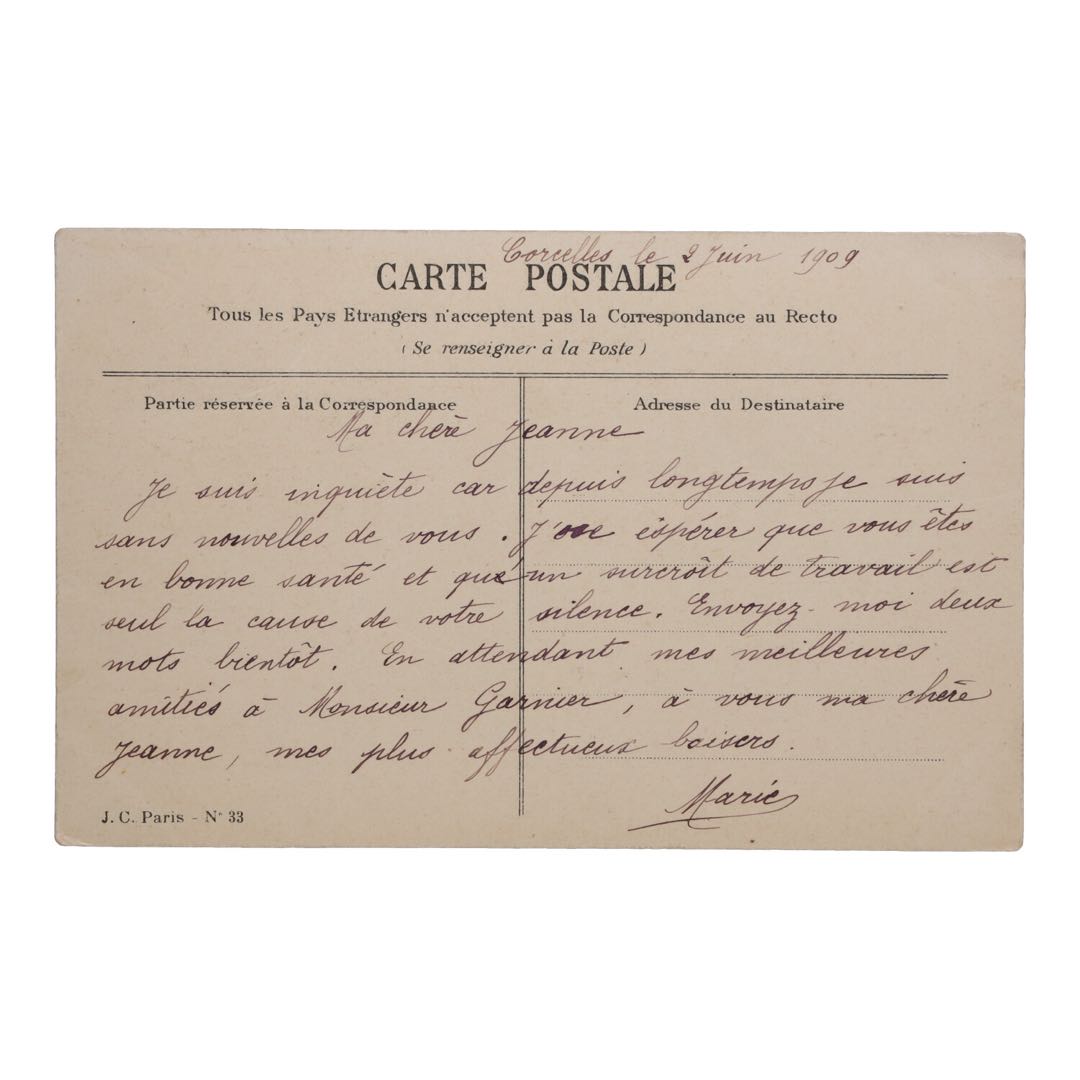 Corcelles le 2 Juin 1909
CARTE POSTALE
Tous les Pays Etrangers n'acceptent pas la Correspondance au Recto
(Se renseigner à la Poste)
Partie réservée à la Correspondance
Adresse du Destinataire
Ma chère Jeanne
Je suis inquiète car depuis longtemps je suis
sans nouvelles de vous. J'ose éspérer que vous êtes
en bonne santé et qu'un surcroît de travail est
seul la cause de votre silence. Envoyez-moi deux
mots bientôt. En attendant mes meilleures
amitiés à Monsieur Garnier, à vous ma chère
Jeanne, mes plus affectueux baisers.
Marie
J. C. Paris - N° 33